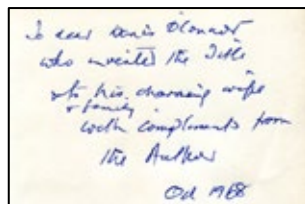 To dear Denis O'Connor
who invented the Title
& to his charming wife
& family
with compliments from
the Author
Oct 1988